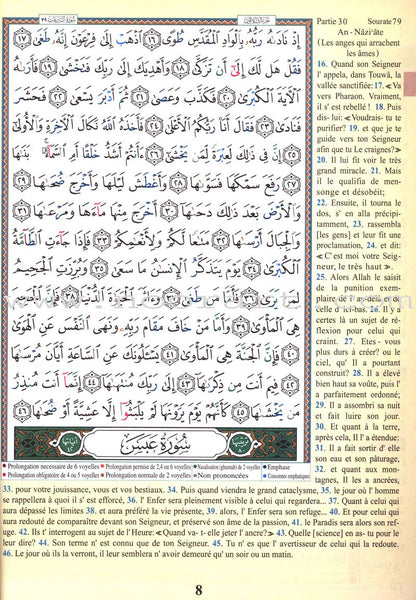 Partie 30 Sourate 79
An - Nâzi'âte
(Les anges qui arrachent
les âmes)
إِذْ نَادَىٰهُ رَبُّهُۥ بِٱلْوَادِ ٱلْمُقَدَّسِ طُوًى ١٦ ٱذْهَبْ إِلَىٰ فِرْعَوْنَ إِنَّهُۥ طَغَىٰ ١٧
فَقُلْ هَل لَّكَ إِلَىٰٓ أَن تَزَكَّىٰ ١٨ وَأَهْدِيَكَ إِلَىٰ رَبِّكَ فَتَخْشَىٰ ١٩ فَأَرَىٰهُ
ٱلْءَايَةَ ٱلْكُبْرَىٰ ٢٠ فَكَذَّبَ وَعَصَىٰ ٢١ ثُمَّ أَدْبَرَ يَسْعَىٰ ٢٢ فَحَشَرَ
فَنَادَىٰ ٢٣ فَقَالَ أَنَا۠ رَبُّكُمُ ٱلْأَعْلَىٰ ٢٤ فَأَخَذَهُ ٱللَّهُ نَكَالَ ٱلْءَاخِرَةِ وَٱلْأُولَىٰٓ
٢٥ إِنَّ فِى ذَٰلِكَ لَعِبْرَةً لِّمَن يَخْشَىٰٓ ٢٦ ءَأَنتُمْ أَشَدُّ خَلْقًا أَمِ ٱلسَّمَآءُ بَنَىٰهَا
٢٧ رَفَعَ سَمْكَهَا فَسَوَّىٰهَا ٢٨ وَأَغْطَشَ لَيْلَهَا وَأَخْرَجَ ضُحَىٰهَا ٢٩
وَٱلْأَرْضَ بَعْدَ ذَٰلِكَ دَحَىٰهَآ ٣٠ أَخْرَجَ مِنْهَا مَآءَهَا وَمَرْعَىٰهَا ٣١
وَٱلْجِبَالَ أَرْسَىٰهَا ٣٢ مَتَٰعًا لَّكُمْ وَلِأَنْعَٰمِكُمْ ٣٣ فَإِذَا جَآءَتِ ٱلطَّآمَّةُ
ٱلْكُبْرَىٰ ٣٤ يَوْمَ يَتَذَكَّرُ ٱلْإِنسَٰنُ مَا سَعَىٰ ٣٥ وَبُرِّزَتِ ٱلْجَحِيمُ
لِمَن يَرَىٰ ٣٦ فَأَمَّا مَن طَغَىٰ ٣٧ وَءَاثَرَ ٱلْحَيَوٰةَ ٱلدُّنْيَا ٣٨ فَإِنَّ ٱلْجَحِيمَ
هِىَ ٱلْمَأْوَىٰ ٣٩ وَأَمَّا مَنْ خَافَ مَقَامَ رَبِّهِۦ وَنَهَى ٱلنَّفْسَ عَنِ ٱلْهَوَىٰ
٤٠ فَإِنَّ ٱلْجَنَّةَ هِىَ ٱلْمَأْوَىٰ ٤١ يَسْـَٔلُونَكَ عَنِ ٱلسَّاعَةِ أَيَّانَ مُرْسَىٰهَا
٤٢ فِيمَ أَنتَ مِن ذِكْرَىٰهَآ ٤٣ إِلَىٰ رَبِّكَ مُنتَهَىٰهَآ ٤٤ إِنَّمَآ أَنتَ مُنذِرُ
مَن يَخْشَىٰهَا ٤٥ كَأَنَّهُمْ يَوْمَ يَرَوْنَهَا لَمْ يَلْبَثُوٓا۟ إِلَّا عَشِيَّةً أَوْ ضُحَىٰهَا ٤٦
سُورَةُ عَبَسَ
16. Quand son Seigneur
l' appela, dans Touwâ, la
vallée sanctifiée: 17. «Va
vers Pharaon. Vraiment,
il s' est rebellé ! 18. Puis
dis- lui: «Voudrais- tu te
purifier? 19. et que je te
guide vers ton Seigneur
afin que tu Le craignes?»
20. Il lui fit voir le très
grand miracle. 21. Mais
il le qualifia de men-
songe et désobéit;
22. Ensuite, il tourna le
dos, s' en alla précipi-
tamment, 23. rassembla
[les gens] et leur fit une
proclamation, 24. et dit:
«C'est moi votre Seig-
neur, le très haut».
25. Alors Allah le saisit
de la punition exem-
plaire de l' au-delà et de
celle d' ici-bas. 26. Il y a
certes là un sujet de ré-
flexion pour celui qui
craint. 27. Etes - vous
plus durs à créer? ou le
ciel, qu' Il a pourtant
construit? 28. Il a élevé
bien haut sa voûte, puis l'
a parfaitement ordonné;
29. Il a assombri sa nuit
et fait luire son jour.
30. Et quant à la terre,
après cela, Il l' a étendue:
31. Il a fait sortir d' elle
son eau et son pâturage,
32. et quant aux mon-
tagnes, Il les a ancrées,
Prolongation necessaire de 6 voyelles Prolongation permise de 2,4 ou 6 voyelles Nasalisation (ghunnah) de 2 voyelles Emphase
Prolongation obligatoire de 4 ou 5 voyelles Prolongation normale de 2 voyelles Non prononcées Consonnes emphatiques
33. pour votre jouissance, vous et vos bestiaux. 34. Puis quand viendra le grand cataclysme, 35. le jour où l' homme
se rappellera à quoi il s' est efforcé, 36. l' Enfer sera pleinement visible à celui qui regardera... 37. Quant à celui qui
aura dépassé les limites 38. et aura préféré la vie présente, 39. alors, l' Enfer sera son refuge... 40. Et pour celui qui
aura redouté de comparaître devant son Seigneur, et préservé son âme de la passion, 41. le Paradis sera alors son ref-
uge. 42. Ils t' interrogent au sujet de l' Heure: «Quand va- t- elle jeter l' ancre?» 43. Quelle [science] en as- tu pour le
leur dire? 44. Son terme n' est connu que de ton Seigneur. 45. Tu n' es que l' avertisseur de celui qui la redoute.
46. Le jour où ils la verront, il leur semblera n' avoir demeuré qu' un soir ou un matin.
8